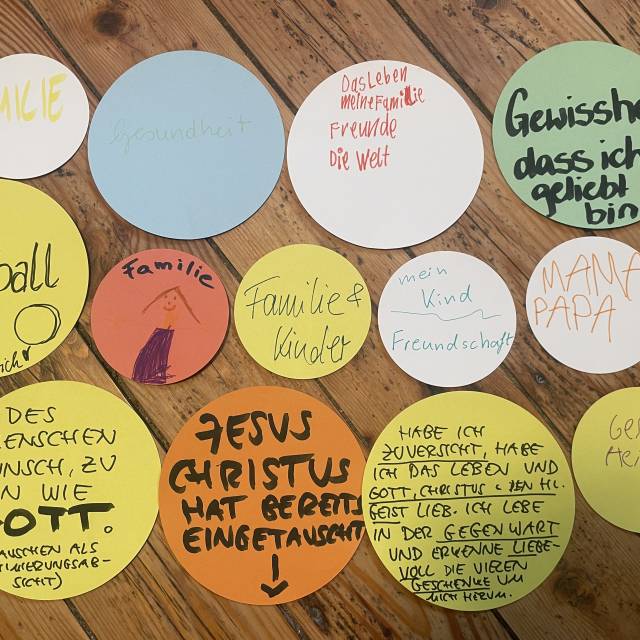 MILIE
Gesundheit
Das Leben
meine Familie
Freunde
Die Welt
Gewisshe
dass ich
geliebt
bin
ball
ich
Familie
Familie &
Kinder
mein
Kind
Freundschaft
MAMA
PAPA
DES
ENSCHEN
UNSCH, ZU
N WIE
GOTT.
AUSCHEN ALS
TUIERUNGSAB-
SICHT)
JESUS
CHRISTUS
HAT BEREITS
EINGETAUSCHT
HABE ICH
ZUVERSICHT, HABE
ICH DAS LEBEN UND
GOTT, CHRISTUS & DEN HL.
GEIST LIEB. ICH LEBE
IN DER GEGENWART
UND ERKENNE LIEBE-
VOLL DIE VIELEN
GESCHENKE UM
MICH HERUM.
Ges